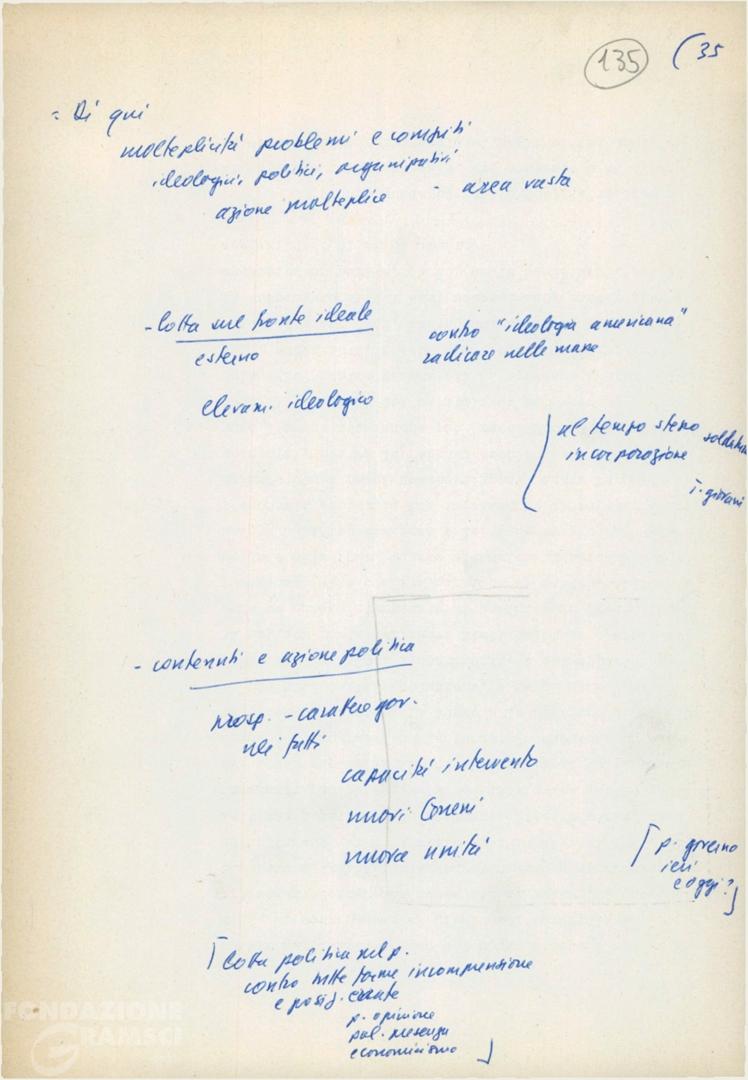 135 (35
= Di qui
molteplicità problemi e compiti
ideologici, politici, organizzativi
azione molteplice - area vasta
- lotta sul fronte ideale
esterno
contro "ideologia americana"
radicare nelle masse
elevam. ideologico
nel tempo stesso soldatura
incorporazione
i. giovani
- contenuti e azione politica
prosp. - carattere gov.
nei fatti
capacità intervento
nuovi
nuova unità
p. governo
ieri
e oggi?
lotta politica nel p.
contro tutte forme incomprensione
e posiz. errate
p. opinione
presenza
economicismo
FONDAZIONE
GRAMSCI